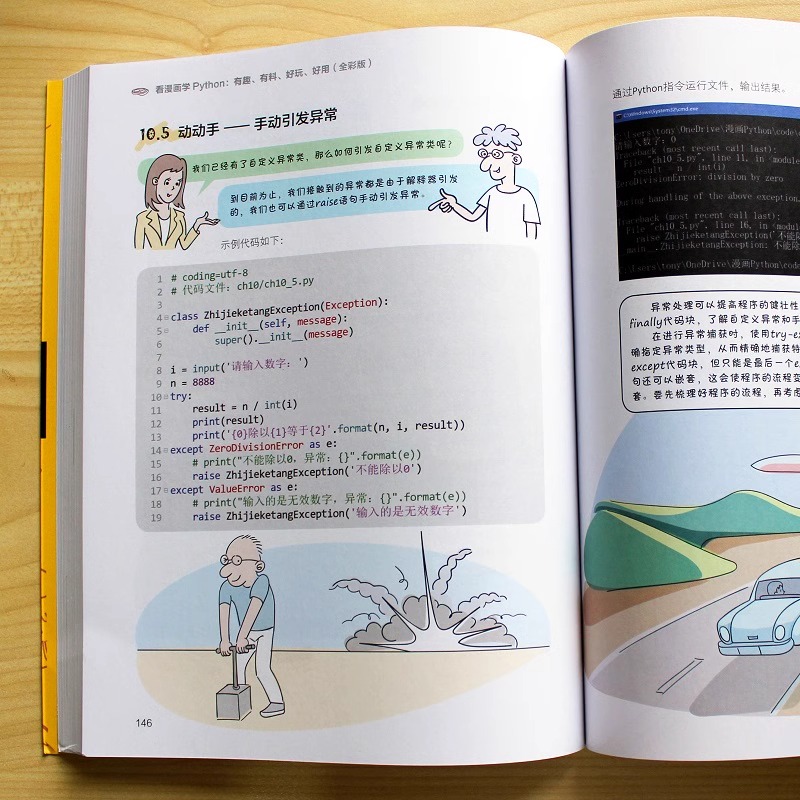 看漫画学 Python：有趣、有料、好玩、好用（全彩版）
10.5 动动手 —— 手动引发异常
我们已经有了自定义异常类，那么如何引发自定义异常类呢？
到目前为止，我们接触到的异常都是由于解释器引发
的，我们也可以通过raise语句手动引发异常。
示例代码如下：
1 # coding=utf-8
2 # 代码文件：ch10/ch10_5.py
3
4 class ZhijieketangException(Exception):
5 def __init__(self, message):
6 super().__init__(message)
7
8 i = input('请输入数字：')
9 n = 8888
10 try:
11 result = n / int(i)
12 print(result)
13 print('{0}除以{1}等于{2}'.format(n, i, result))
14 except ZeroDivisionError as e:
15 # print("不能除以0，异常：{}".format(e))
16 raise ZhijieketangException('不能除以0')
17 except ValueError as e:
18 # print("输入的是无效数字，异常：{}".format(e))
19 raise ZhijieketangException('输入的是无效数字')
146
通过Python指令运行文件，输出结果。
C:\Windows\System32\cmd.exe
C:\Users\tony\OneDrive\漫画Python\code\
请输入数字：0
Traceback (most recent call last):
File "ch10_5.py", line 11, in <module
result = n / int(i)
ZeroDivisionError: division by zero
During handling of the above exception,
Traceback (most recent call last):
File "ch10_5.py", line 16, in <modu
raise ZhijieketangException('不能除
__main__.ZhijieketangException: 不能除
C:\Users\tony\OneDrive\漫画Python\code
异常处理可以提高程序的健壮性
finally代码块，了解自定义异常和手
在进行异常捕获时，使用try-ex
确指定异常类型，从而精确地捕获特
except代码块，但只能是最后一个e
句还可以嵌套，这会使程序的流程变
套。要先梳理好程序的流程，再考虑